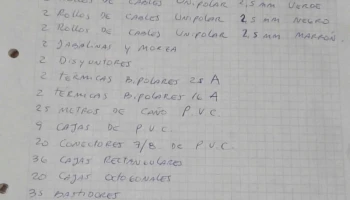 2 Rollos DE CABLES UNIPOLAR 2,5 mm VERDE
2 Rollos DE CABLES UNIPOLAR 2.5 mm NEGRO
2 Rollos DE CABLES UNIPOLAR 2.5 mm MARRON
2 JABALINAS Y MORSA
2 DISYUNTORES
2 TERMICAS BIPOLARES 25 A
2 TERMICAS BIPOLARES 16 A
25 METROS DE CAÑO P.V.C
9 CAJAS DE P.V.C.
20 CONECTORES DE P.V.C.
36 CAJAS RECTANGULARES
20 CAJAS OCTOGONALES
35 BASTIDORES